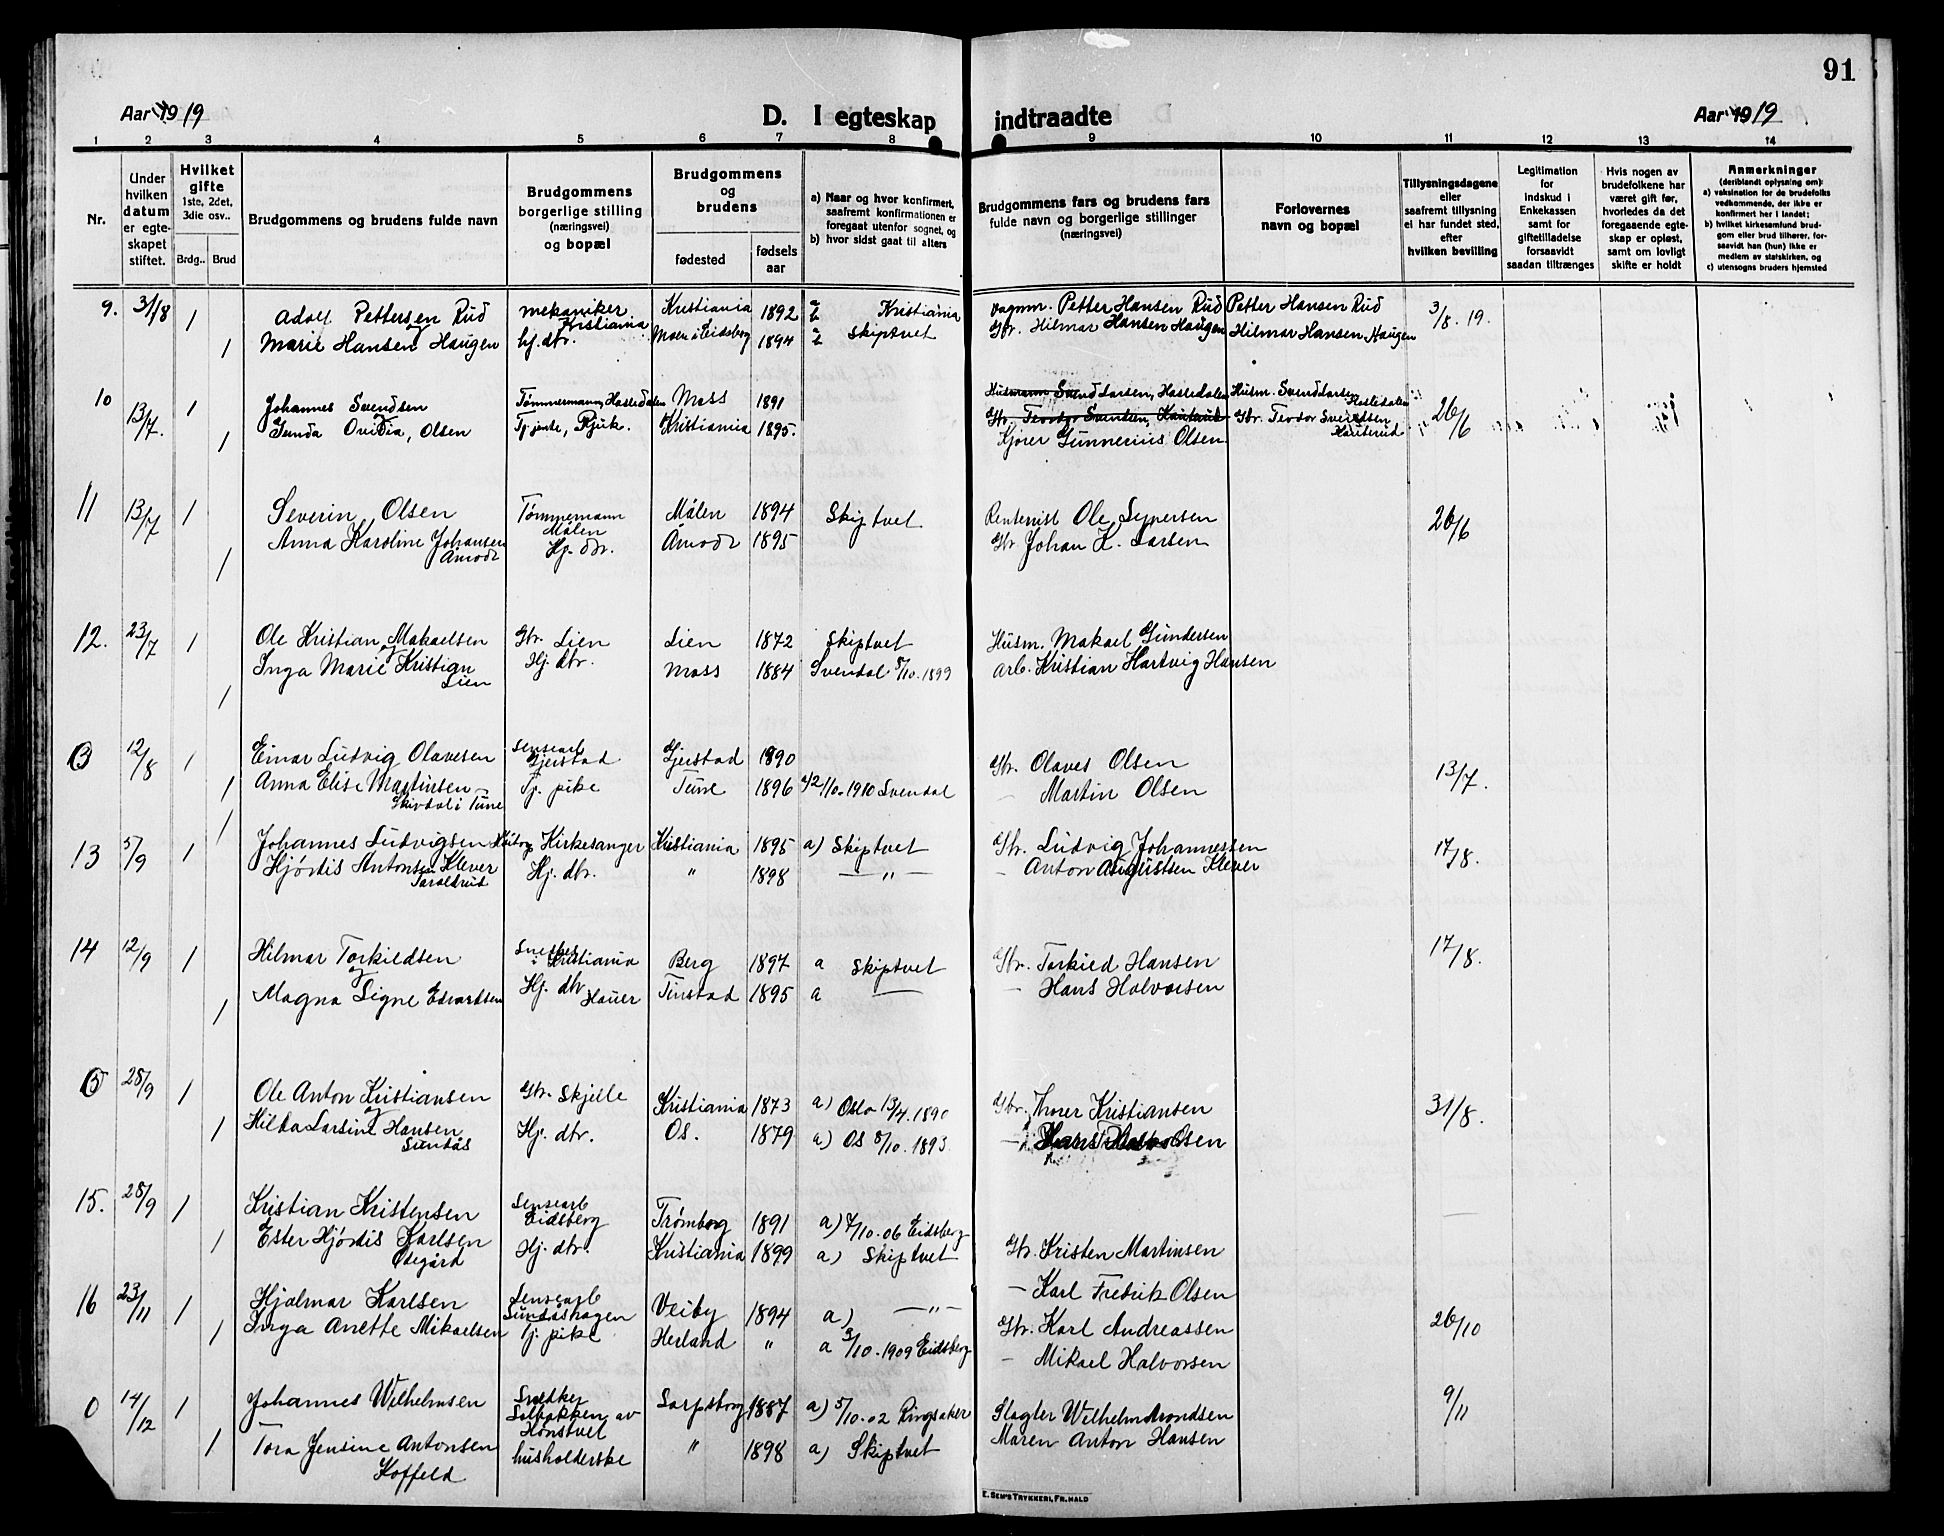 91
Aar 1919
D. I egteskap indtraadte
Aar 1919
1 2 3 4 5 6 7 8 9 10 11 12 13 14
Nr.
Under hvilken datum er egteskapet stiftet.
Hvilket gifte 1ste, 2det, 3die osv..
Brdg.. Brud
Brudgommens og brudens fulde navn
Brudgommens borgerlige stilling (næringsvei) og bopæl
Brudgommens og brudens
fødested
fødselsaar
a) Naar og hvor konfirmert, saafremt konfirmationen er foregaat utenfor sognet, og
b) hvor sidst gaat til alters
Brudgommens fars og brudens fars fulde navn og borgerlige stillinger (næringsvei)
Forlovernes navn og bopæl
Tillysningsdagene eller saafremt tillysning ei har fundet sted, efter hvilken bevilling
Legitimation for indskud i Enkekassen samt for giftetilladelse forsaavidt saadan tiltrænges
Hvis nogen av brudefolkene har været gift før, hvorledes da det foregaaende egteskap er opløst, samt om lovligt skifte er holdt
Anmerkninger (deriblandt oplysning om):
a) vaksination for de brudefolks vedkommende, der ikke er konfirmert her i landet;
b) hvilket kirkesamfund brudgom eller brud tilhører, forsaavidt han (hun) ikke er medlem av statskirken, og
c) utensogns bruders hjemsted
9. 31/8 1 Adolf Pettersen Rud mekaniker Kristiania Kristiania 1892 Kristiania vognm. Petter Hansen Rud Petter Hansen Rud 3/8. 19.
1 Marie Hansen Haugen hj. dtr. Moen i Eidsberg 1894 Skiptvet Gbr. Hilmar Hansen Haugen Hilmar Hansen Haugen
10 13/7. 1 Johannes Svendsen Tømmermann, Hasledalen Moss 1891 Husmann Svend Larsen, Hasledalen Husm. Svend Larsen Hasledalen 26/6
1 Gunda Ovidia, Olsen Tj. jente, Rjuk. Kristiania 1895. Gbr. Teodor Svendsen, Gbr. Teodor Svendsen
Kjører Gunnerius Olsen
11 13/7 1 Severin Olsen Tømmermann Målen Målen 1894 Skiptvet Rentenist Ole Syversen 26/6
1 Anna Karoline Johansen Åmodt Hj. dtr. Åmodt 1895 Gbr Johan K. Larsen
12. 23/7 1 Ole Kristian Makaelsen Gbr. Lien Lien 1872 Skiptvet Husm. Makael Gundersen
1 Inga Marie Kristian Lien Hj. dtr. Moss 1884 Svendal 8/10. 1899 arb. Kristian Hartvig Hansen
12/8 1 Einar Ludvig Olavesen Gjerstad Gjerstad 1890 Gbr. Olaves Olsen 13/7.
1 Anna Elise Martinsen Skivdal i Tune Tj. pike Tune 1896 1/10. 1910 Svendal — Martin Olsen
13 5/9 1 Johannes Ludvigsen Kirkesanger Kristiania 1895 a) Skiptvet Gbr. Ludvig Johannessen 17/8.
1 Hjørdis Antonsen Klever Hj. dtr. " 1898 — " — — Anton Augustsen Klever
14 12/9 1 Hilmar Torkildsen Snekker i Kristiania Berg 1897 a Skiptvet Gbr. Torkied Hansen 17/8.
1 Magna Signe Edvardsen Hj. dtr Hauer Tinstad 1895 a — — Hans Halvorsen
28/9 1 Ole Anton Kristiansen Gbr. Skjelle Kristiania 1873 a) Oslo 13/4. 1890 Gbr. Thorer Kristiansen 31/8.
1 Hilda Larsine Hansen Sundås Hj. dtr. Os. 1879 a) Os 8/10. 1893. — Hans
15. 28/9 1 Kristian Kristensen Eidsberg Trømborg 1891 a) 7/10. 06 Eidsberg Gbr. Kristen Martinsen —
1 Ester Hjørdis Karlsen Ødegård Hj. dtr. Kristiania 1899 a) Skiptvet — Karl Fredrik Olsen
16 23/11 1 Hjalmar Karlsen Sensearb Sundåshagen Veiby 1894 a) — " — Gbr. Karl Andreassen 26/10
1 Inga Anette Mikaelsen Tj. pike Herland " a 3/10. 1909 Eidsberg — Mikael Halvorsen
0 14/12 1 Johannes Wilhelmsen Snedker Solbakken av Honstvet Sarpsborg 1887 a) 5/10. 02 Ringsaker Slagter Wilhelm Arondsen 9/11
1 Tora Jensine Antonsen Koffeld husholderske " 1898 a) Skiptvet Maren Anton Hansen
E. SEM'S TRYKKERI, FR.HALD